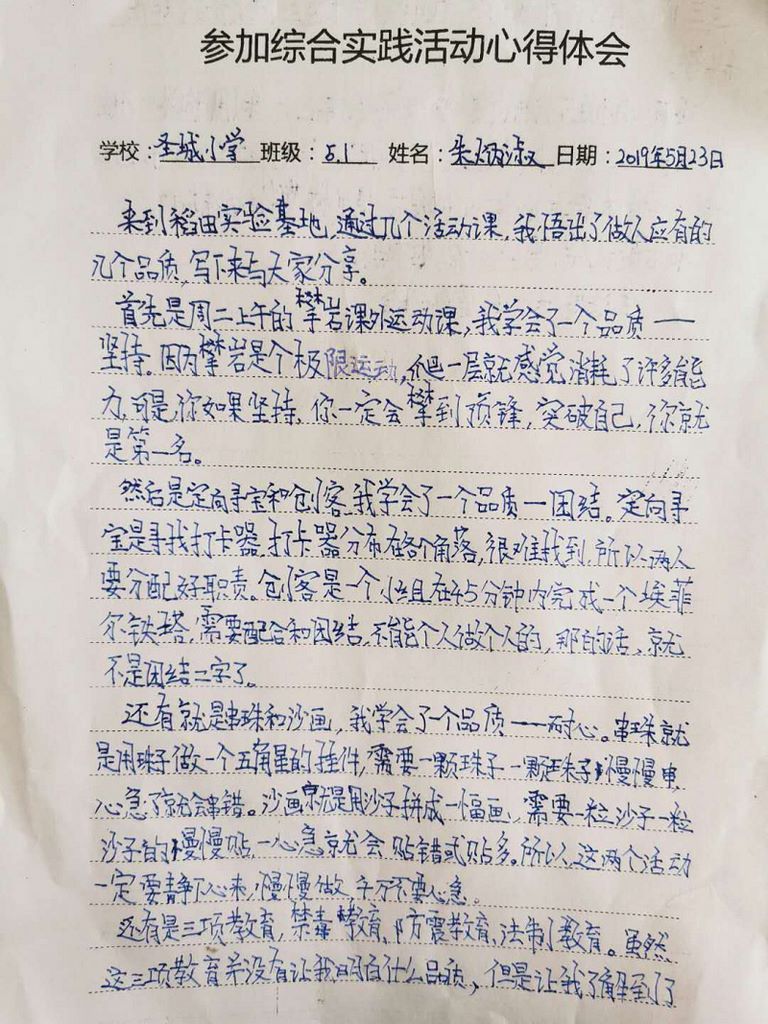 参加综合实践活动心得体会
学校：圣城小学 班级：5.1 姓名：朱炳淑 日期：2019年5月23日
来到稻田实验基地，通过几个活动课，我悟出了做人应有的
几个品质，写下来与大家分享。
首先是周二上午的攀岩课外运动课，我学会了一个品质——
坚持。因为攀岩是个极限运动，爬一层就感觉消耗了许多能
力，可是，你如果坚持，你一定会攀到顶锋，突破自己，你就
是第一名。
然后是定向寻宝和创客，我学会了一个品质—团结。定向寻
宝是寻找打卡器，打卡器分布在各个角落，很难找到，所以两人
要分配好职责。创客是一个小组在45分钟内完成一个埃菲
尔铁塔，需要配合和团结，不能个人做个人的，那的话，就
不是团结二字了。
还有就是串珠和沙画，我学会了一个品质——耐心。串珠就
是用珠子做一个五角星的挂件，需要一颗珠子一颗珠子慢慢串，
心急了就会串错。沙画就是用沙子拼成一幅画，需要一粒沙子一粒
沙子的慢慢贴，一心急就会贴错或贴多。所以，这两个活动
一定要静下心来，慢慢做，千万不要心急。
还有是三项教育，禁毒教育、防震教育、法制教育。虽然
这三项教育并没有让我明白什么品质，但是让我了解到了